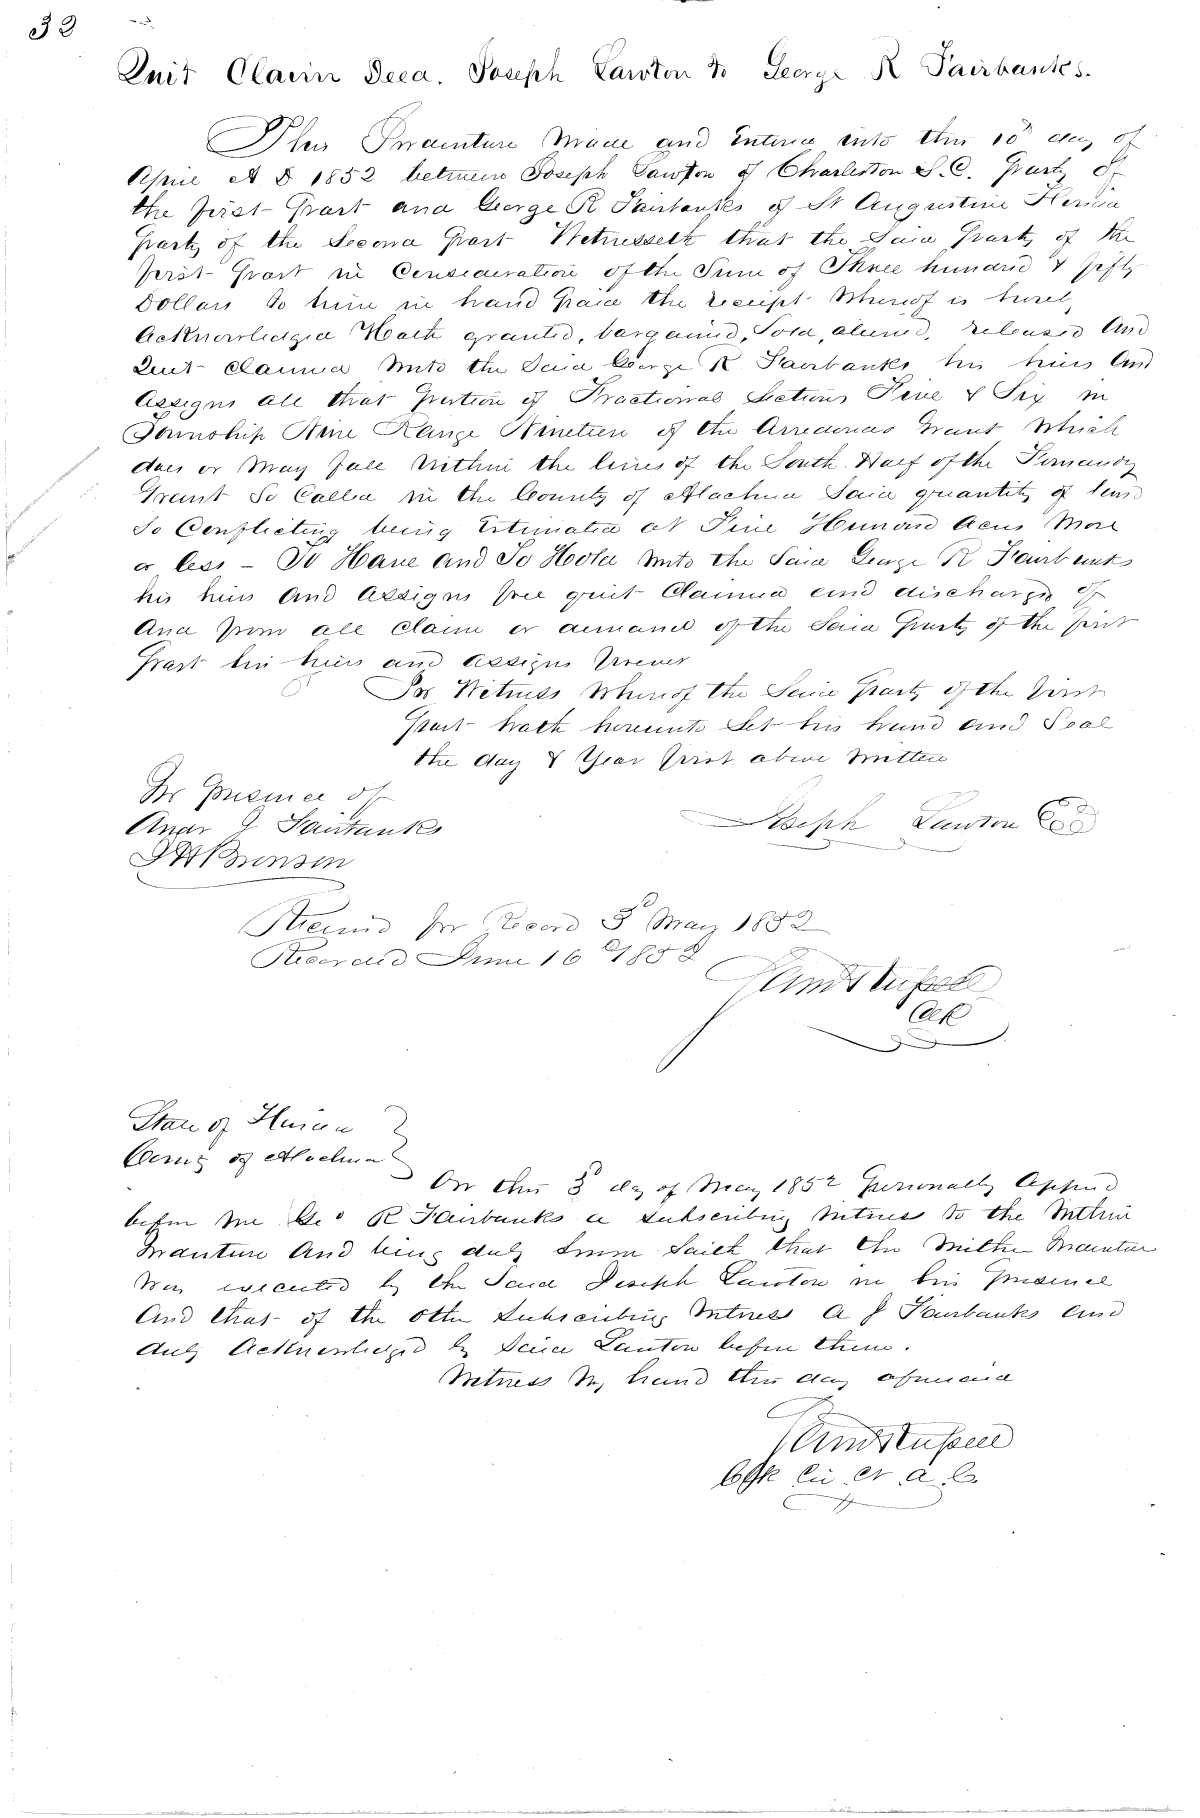 32
Quit Claim Deed. Joseph Lawton to George R Fairbanks.
This Indenture Made and Entered into this 10th day of
April A D 1852 between Joseph Lawton of Charleston S.C. party of
the first part and George R Fairbanks of St Augustine Florida
party of the Second part Witnesseth that the Said party of the
first part in Consideration of the Sum of Three hundred & fifty
Dollars to him in hand paid the receipt whereof is hereby
Acknowledged Hath granted, bargained, Sold, aliened, released And
Quit claimed unto the Said George R Fairbanks his heirs And
Assigns all that portion of Fractional Sections Five & Six in
Township Nine Range Nineteen of the Arredondo Grant which
does or may fall within the lines of the South Half of the Fernandez
Grant So Called in the County of Alachua Said quantity of land
So Conflicting being Estimated at Five Hundred Acres More
or less - To Have and To Hold unto the Said George R Fairbanks
his heirs And Assigns free quit Claimed and discharged of
And from all claim or demand of the Said party of the first
part his heirs and assigns forever
In Witness whereof the Said party of the first
part hath hereunto Set his hand and Seal
the day & Year first above written
In presence of
Andr J Fairbanks
Joseph Lawton
J H Brinson
Received for Record 3d May 1852
Recorded June 16 1852
Clk
State of Florida
County of Alachua
On this 3d day of May 1852 personally Appeared
before me Geo R Fairbanks a subscribing witness to the within
Indenture And being duly sworn Saith that the within Indenture
was executed by the Said Joseph Lawton in his presence
And that of the other subscribing witness A J Fairbanks and
duly Acknowledged by Said Lawton before them.
Witness My hand this day aforesaid
Clk Cir Ct A. C.